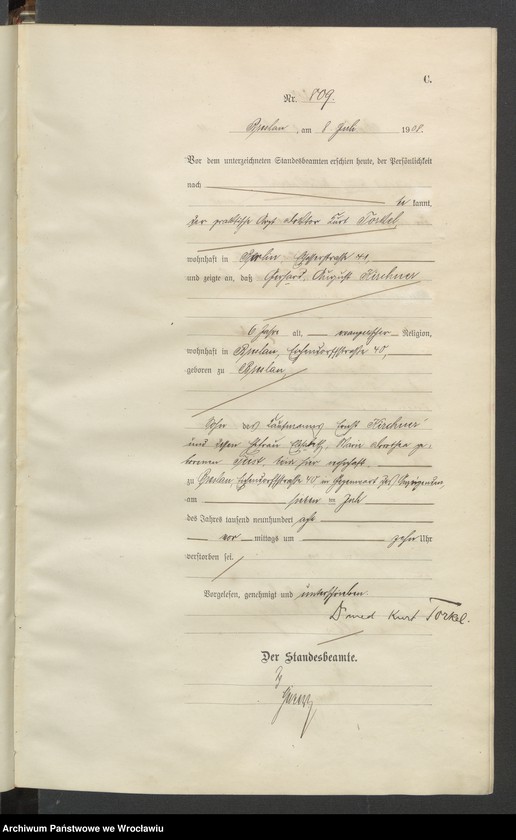 C.
Nr. 809.
Breslau, am 8 Juli 1908.
Vor dem unterzeichneten Standesbeamten erschien heute, der Persönlichkeit
nach
be kannt,
der praktische Arzt Doktor Kurt Torkel
wohnhaft in 41,
und zeigte an, daß Gerhard August Kirchner
6 Jahre alt, evangelischer Religion,
wohnhaft in Breslau, 40,
geboren zu Breslau,
Sohn des Kaufmanns Kirchner
und dessen Ehefrau Dorothea ge-
borenen hier
zu Breslau, 40 in Gegenwart des Anzeigenden,
am sieben ten Juli
des Jahres tausend neunhundert acht
vor mittags um zehn Uhr
verstorben sei.
Vorgelesen, genehmigt und unterschrieben.
Dr med Kurt Torkel.
Der Standesbeamte.
Archiwum Państwowe we Wrocławiu